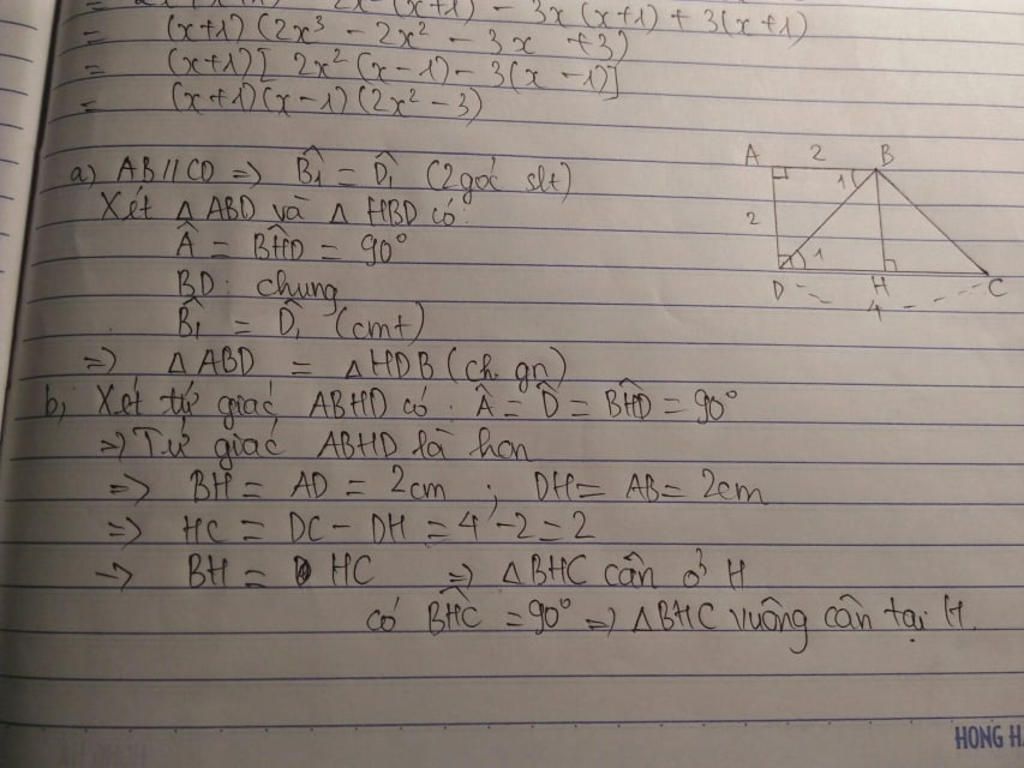 - 2x² (x+1) - 3x (x+1) + 3(x+1)
= (x+1) (2x³ - 2x² - 3x + 3)
= (x+1) [ 2x² (x-1) - 3(x-1)]
= (x+1) (x-1) (2x² - 3)
a) AB // CD => B̂₁ = D̂₁ (2 góc slt)
Xét △ ABD và △ HBD có:
Â = BĤD = 90°
BD: chung
B̂₁ = D̂₁ (cmt)
=> △ ABD = △ HDB (ch. gn)
b, Xét tứ giác ABHD có: Â = D̂ = BĤD = 90°
=> Tứ giác ABHD là hcn
=> BH = AD = 2cm ; DH = AB = 2cm
=> HC = DC - DH = 4 - 2 = 2
-> BH = HC => △ BHC cân ở H
có BĤC = 90° => △BHC vuông cân tại H.
A 2 B
1
2
1
D H C
4
HONG H